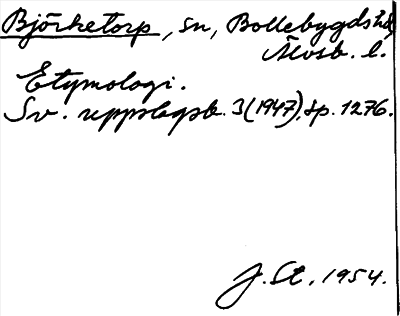 Björketorp, sn, Bollebygds hd,
Älvsb. l.
Etymologi.
Sv. uppslagsb. 3 (1947), sp. 1276.
J. St. 1954.